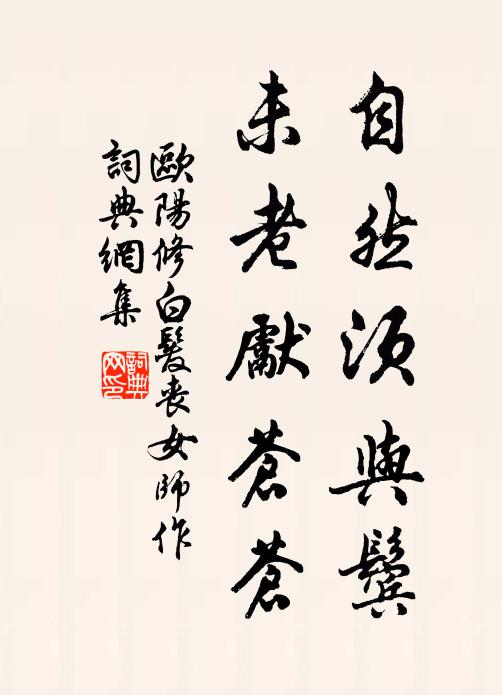 自然須與鬢
未老獻蒼蒼
歐陽修白髮喪女師作
詞典網集
詞典
网印